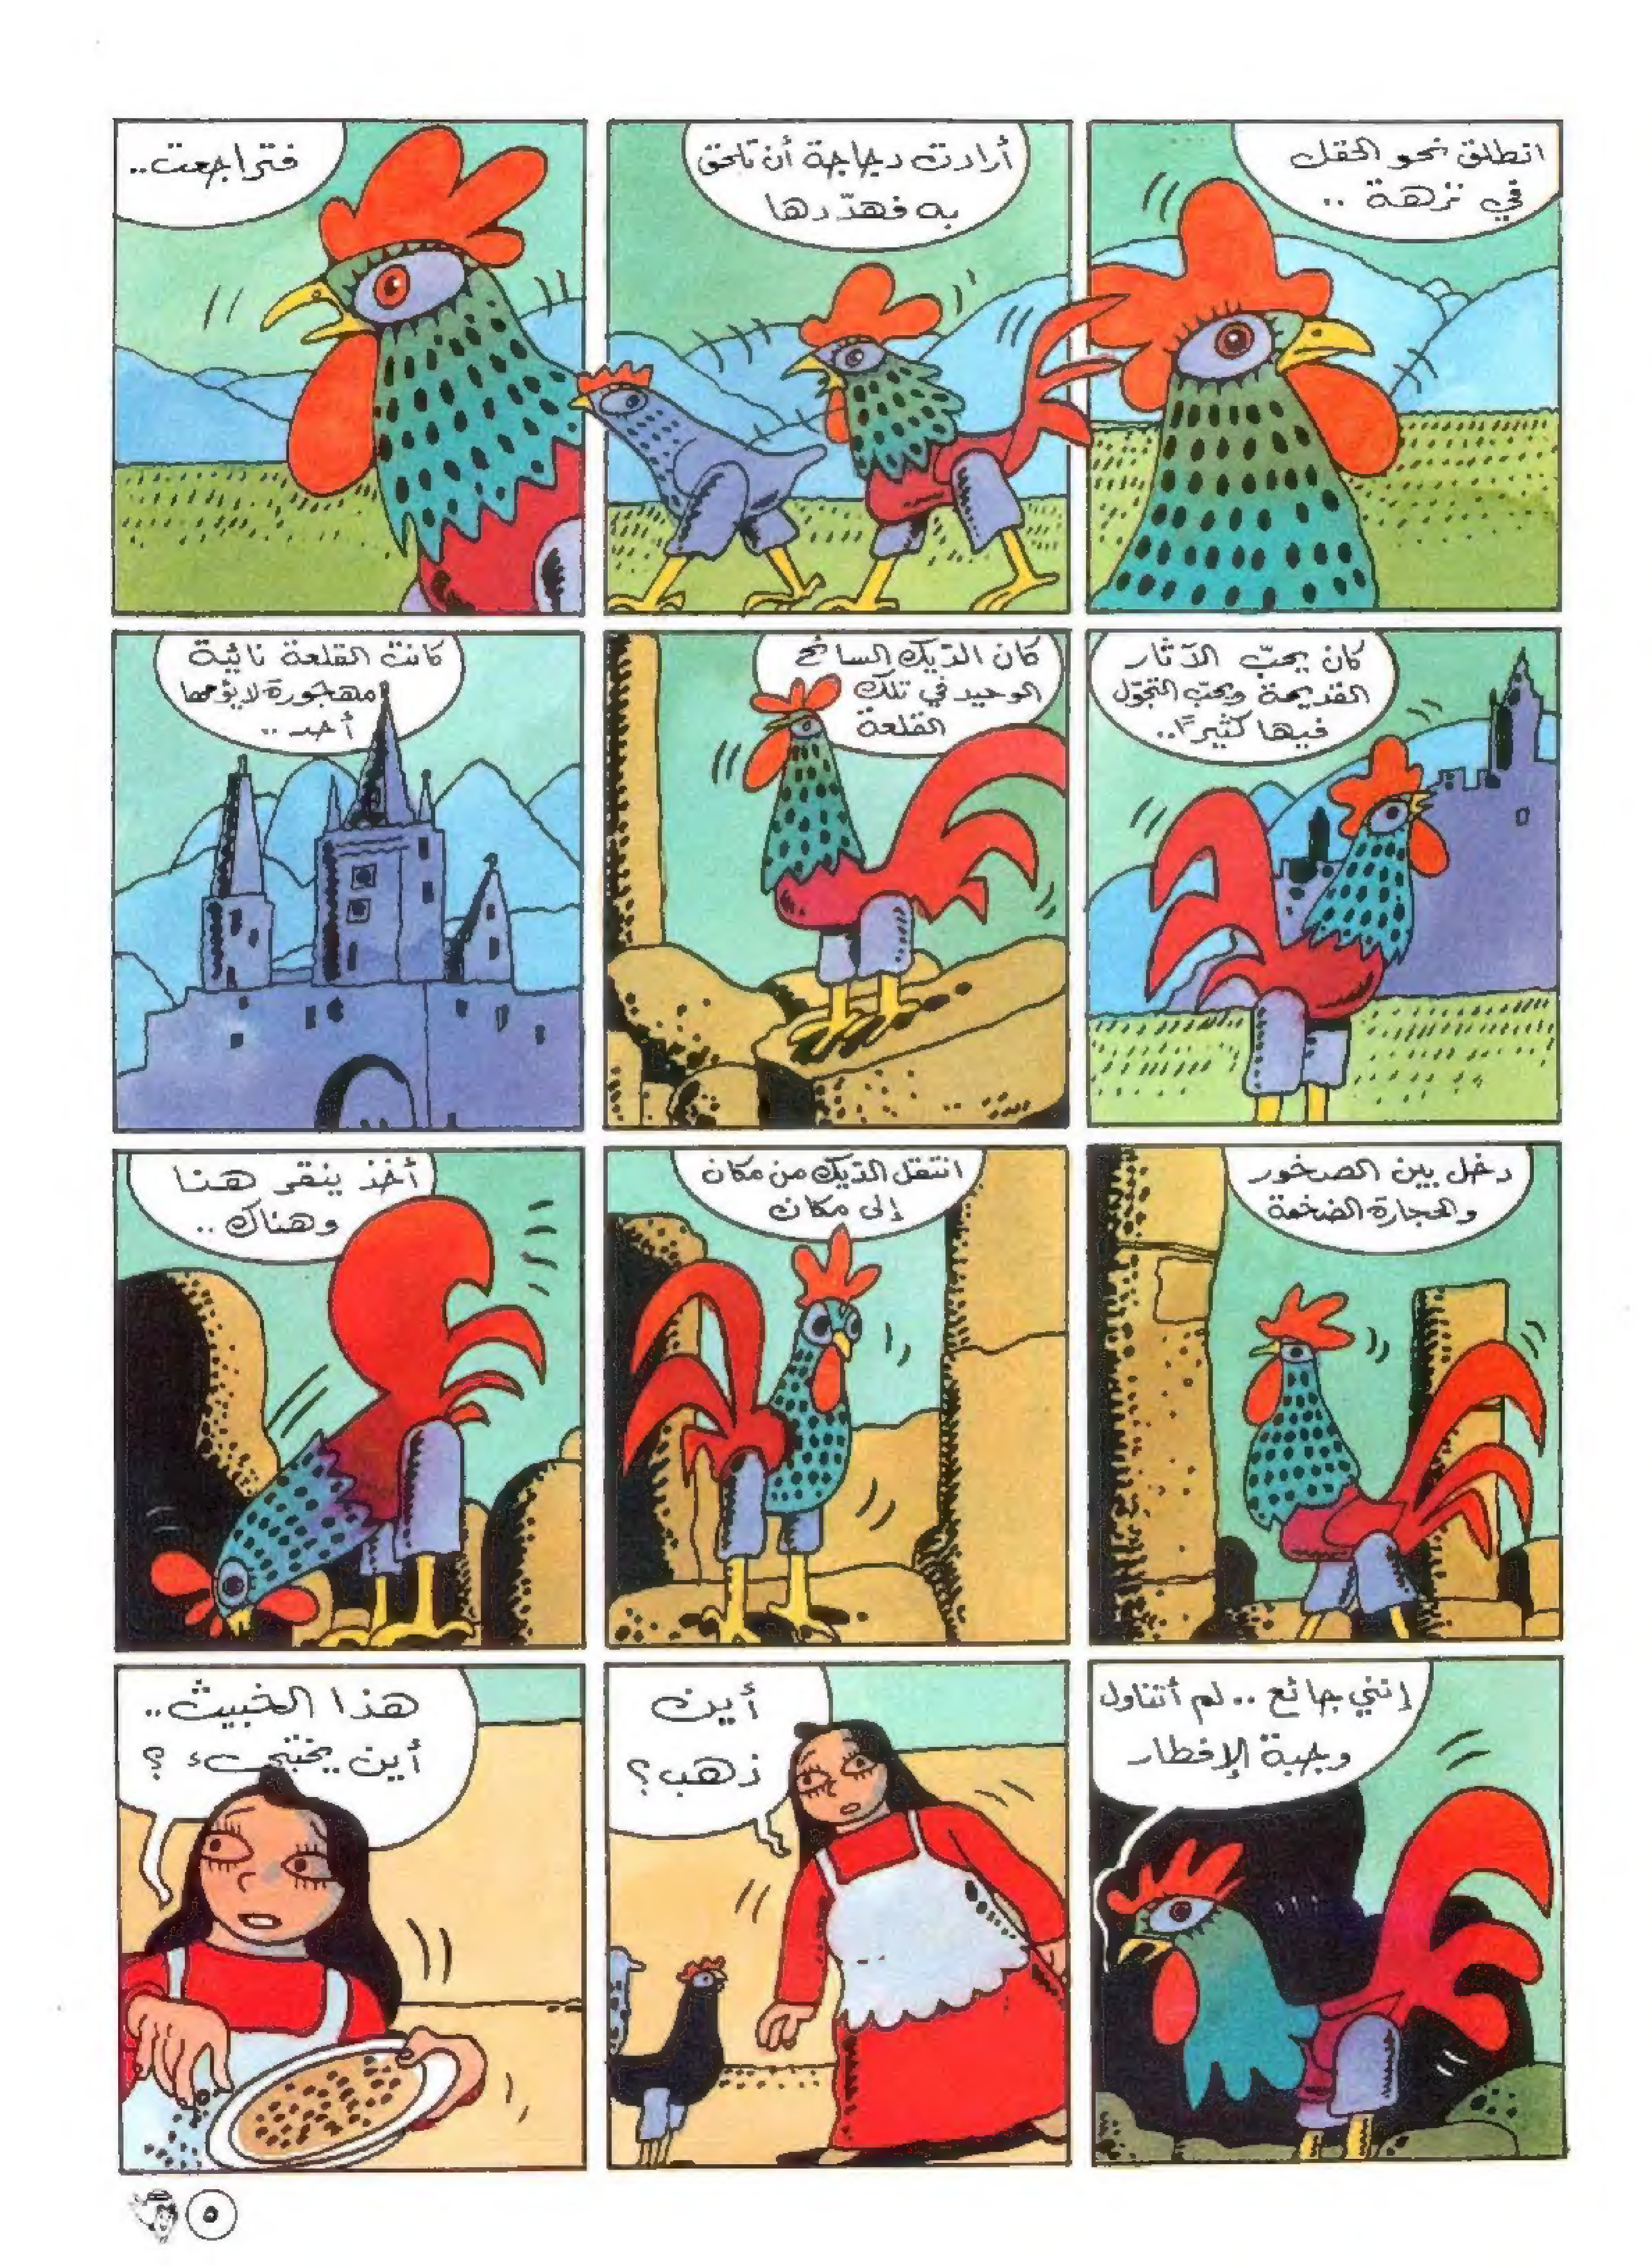 انطلق نحو الحقل
في نزهة ..
أرادت دجاجة أن تلحق
به فهدّدها
فتراجعت..
كان يحبّ الآثار
القديمة ويحبّ التجوّل
فيها كثيرًا..
كان الدّيك السائح
الوحيد في تلك
القلعة
كانت القلعة نائية
مهجورة لا يؤمها
أحد ..
دخل بين الصخور
والحجارة الضخمة
انتقل الدّيك من مكان
إلى مكان
أخذ ينقر هنا
وهناك ..
إنني جائع .. لم أتناول
وجبة الإفطار
أين
ذهب؟
هذا الخبيث..
أين يختبىء ؟
٥